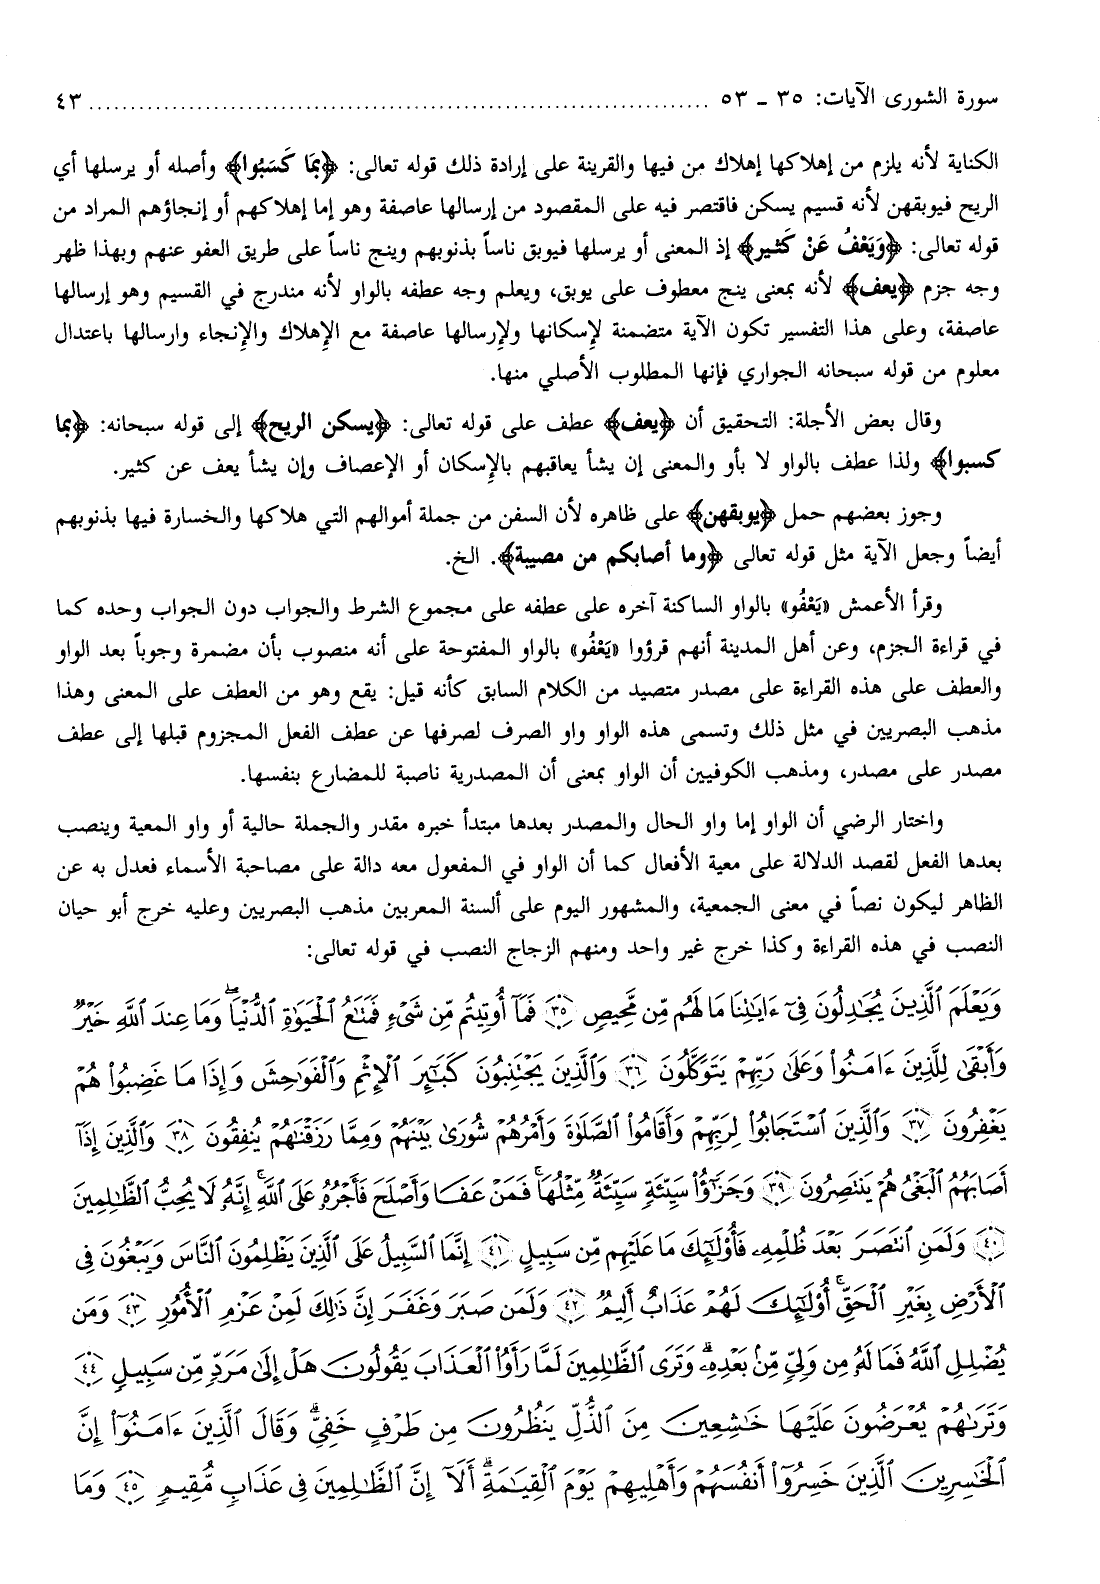 سورة الشورى الآيات: ٣٥ ـ ٥٣ ........................................................................ ٤٣
الكناية لأنه يلزم من إهلاكها إهلاك من فيها والقرينة على إرادة ذلك قوله تعالى: ﴿بِمَا كَسَبُوا﴾ وأصله أو يرسلها أي
الريح فيوبقهن لأنه قسيم يسكن فاقتصر فيه على المقصود من إرسالها عاصفة وهو إما إهلاكهم أو إنجاؤهم المراد من
قوله تعالى: ﴿وَيَعْفُ عَنْ كَثير﴾ إذ المعنى أو يرسلها فيوبق ناساً بذنوبهم وينج ناساً على طريق العفو عنهم وبهذا ظهر
وجه جزم ﴿يعف﴾ لأنه بمعنى ينج معطوف على يوبق، ويعلم وجه عطفه بالواو لأنه مندرج في القسيم وهو إرسالها
عاصفة، وعلى هذا التفسير تكون الآية متضمنة لإسكانها ولإرسالها عاصفة مع الإهلاك والإنجاء وارسالها باعتدال
معلوم من قوله سبحانه الجواري فإنها المطلوب الأصلي منها.
وقال بعض الأجلة: التحقيق أن ﴿يعف﴾ عطف على قوله تعالى: ﴿يسكن الريح﴾ إلى قوله سبحانه: ﴿بما
كسبوا﴾ ولذا عطف بالواو لا بأو والمعنى إن يشأ يعاقبهم بالإسكان أو الإعصاف وإن يشأ يعف عن كثير.
وجوز بعضهم حمل ﴿يوبقهن﴾ على ظاهره لأن السفن من جملة أموالهم التي هلاكها والخسارة فيها بذنوبهم
أيضاً وجعل الآية مثل قوله تعالى ﴿وما أصابكم من مصيبة﴾. الخ.
وقرأ الأعمش «يَعْفُو» بالواو الساكنة آخره على عطفه على مجموع الشرط والجواب دون الجواب وحده كما
في قراءة الجزم، وعن أهل المدينة أنهم قرؤوا «يَعْفُو» بالواو المفتوحة على أنه منصوب بأن مضمرة وجوباً بعد الواو
والعطف على هذه القراءة على مصدر متصيد من الكلام السابق كأنه قيل: يقع وهو من العطف على المعنى وهذا
مذهب البصريين في مثل ذلك وتسمى هذه الواو واو الصرف لصرفها عن عطف الفعل المجزوم قبلها إلى عطف
مصدر على مصدر، ومذهب الكوفيين أن الواو بمعنى أن المصدرية ناصبة للمضارع بنفسها.
واختار الرضي أن الواو إما واو الحال والمصدر بعدها مبتدأ خبره مقدر والجملة حالية أو واو المعية وينصب
بعدها الفعل لقصد الدلالة على معية الأفعال كما أن الواو في المفعول معه دالة على مصاحبة الأسماء فعدل به عن
الظاهر ليكون نصاً في معنى الجمعية، والمشهور اليوم على ألسنة المعربين مذهب البصريين وعليه خرج أبو حيان
النصب في هذه القراءة وكذا خرج غير واحد ومنهم الزجاج النصب في قوله تعالى:
وَيَعْلَمَ ٱلَّذِينَ يُجَٰدِلُونَ فِىٓ ءَايَٰتِنَا مَا لَهُم مِّن مَّحِيصٍ ٣٥ فَمَآ أُوتِيتُم مِّن شَىْءٍ فَمَتَٰعُ ٱلْحَيَوٰةِ ٱلدُّنْيَا ۖ وَمَا عِندَ ٱللَّهِ خَيْرٌ
وَأَبْقَىٰ لِلَّذِينَ ءَامَنُوا۟ وَعَلَىٰ رَبِّهِمْ يَتَوَكَّلُونَ ٣٦ وَٱلَّذِينَ يَجْتَنِبُونَ كَبَٰٓئِرَ ٱلْإِثْمِ وَٱلْفَوَٰحِشَ وَإِذَا مَا غَضِبُوا۟ هُمْ
يَغْفِرُونَ ٣٧ وَٱلَّذِينَ ٱسْتَجَابُوا۟ لِرَبِّهِمْ وَأَقَامُوا۟ ٱلصَّلَوٰةَ وَأَمْرُهُمْ شُورَىٰ بَيْنَهُمْ وَمِمَّا رَزَقْنَٰهُمْ يُنفِقُونَ ٣٨ وَٱلَّذِينَ إِذَآ
أَصَابَهُمُ ٱلْبَغْىُ هُمْ يَنتَصِرُونَ ٣٩ وَجَزَٰٓؤُا۟ سَيِّئَةٍ سَيِّئَةٌ مِّثْلُهَا ۖ فَمَنْ عَفَا وَأَصْلَحَ فَأَجْرُهُۥ عَلَى ٱللَّهِ ۚ إِنَّهُۥ لَا يُحِبُّ ٱلظَّٰلِمِينَ
٤٠ وَلَمَنِ ٱنتَصَرَ بَعْدَ ظُلْمِهِۦ فَأُو۟لَٰٓئِكَ مَا عَلَيْهِم مِّن سَبِيلٍ ٤١ إِنَّمَا ٱلسَّبِيلُ عَلَى ٱلَّذِينَ يَظْلِمُونَ ٱلنَّاسَ وَيَبْغُونَ فِى
ٱلْأَرْضِ بِغَيْرِ ٱلْحَقِّ ۚ أُو۟لَٰٓئِكَ لَهُمْ عَذَابٌ أَلِيمٌ ٤٢ وَلَمَن صَبَرَ وَغَفَرَ إِنَّ ذَٰلِكَ لَمِنْ عَزْمِ ٱلْأُمُورِ ٤٣ وَمَن
يُضْلِلِ ٱللَّهُ فَمَا لَهُۥ مِن وَلِىٍّ مِّنۢ بَعْدِهِۦ ۗ وَتَرَى ٱلظَّٰلِمِينَ لَمَّا رَأَوُا۟ ٱلْعَذَابَ يَقُولُونَ هَلْ إِلَىٰ مَرَدٍّ مِّن سَبِيلٍ ٤٤
وَتَرَىٰهُمْ يُعْرَضُونَ عَلَيْهَا خَٰشِعِينَ مِنَ ٱلذُّلِّ يَنظُرُونَ مِن طَرْفٍ خَفِىٍّ ۗ وَقَالَ ٱلَّذِينَ ءَامَنُوٓا۟ إِنَّ
ٱلْخَٰسِرِينَ ٱلَّذِينَ خَسِرُوٓا۟ أَنفُسَهُمْ وَأَهْلِيهِمْ يَوْمَ ٱلْقِيَٰمَةِ ۗ أَلَآ إِنَّ ٱلظَّٰلِمِينَ فِى عَذَابٍ مُّقِيمٍ ٤٥ وَمَا